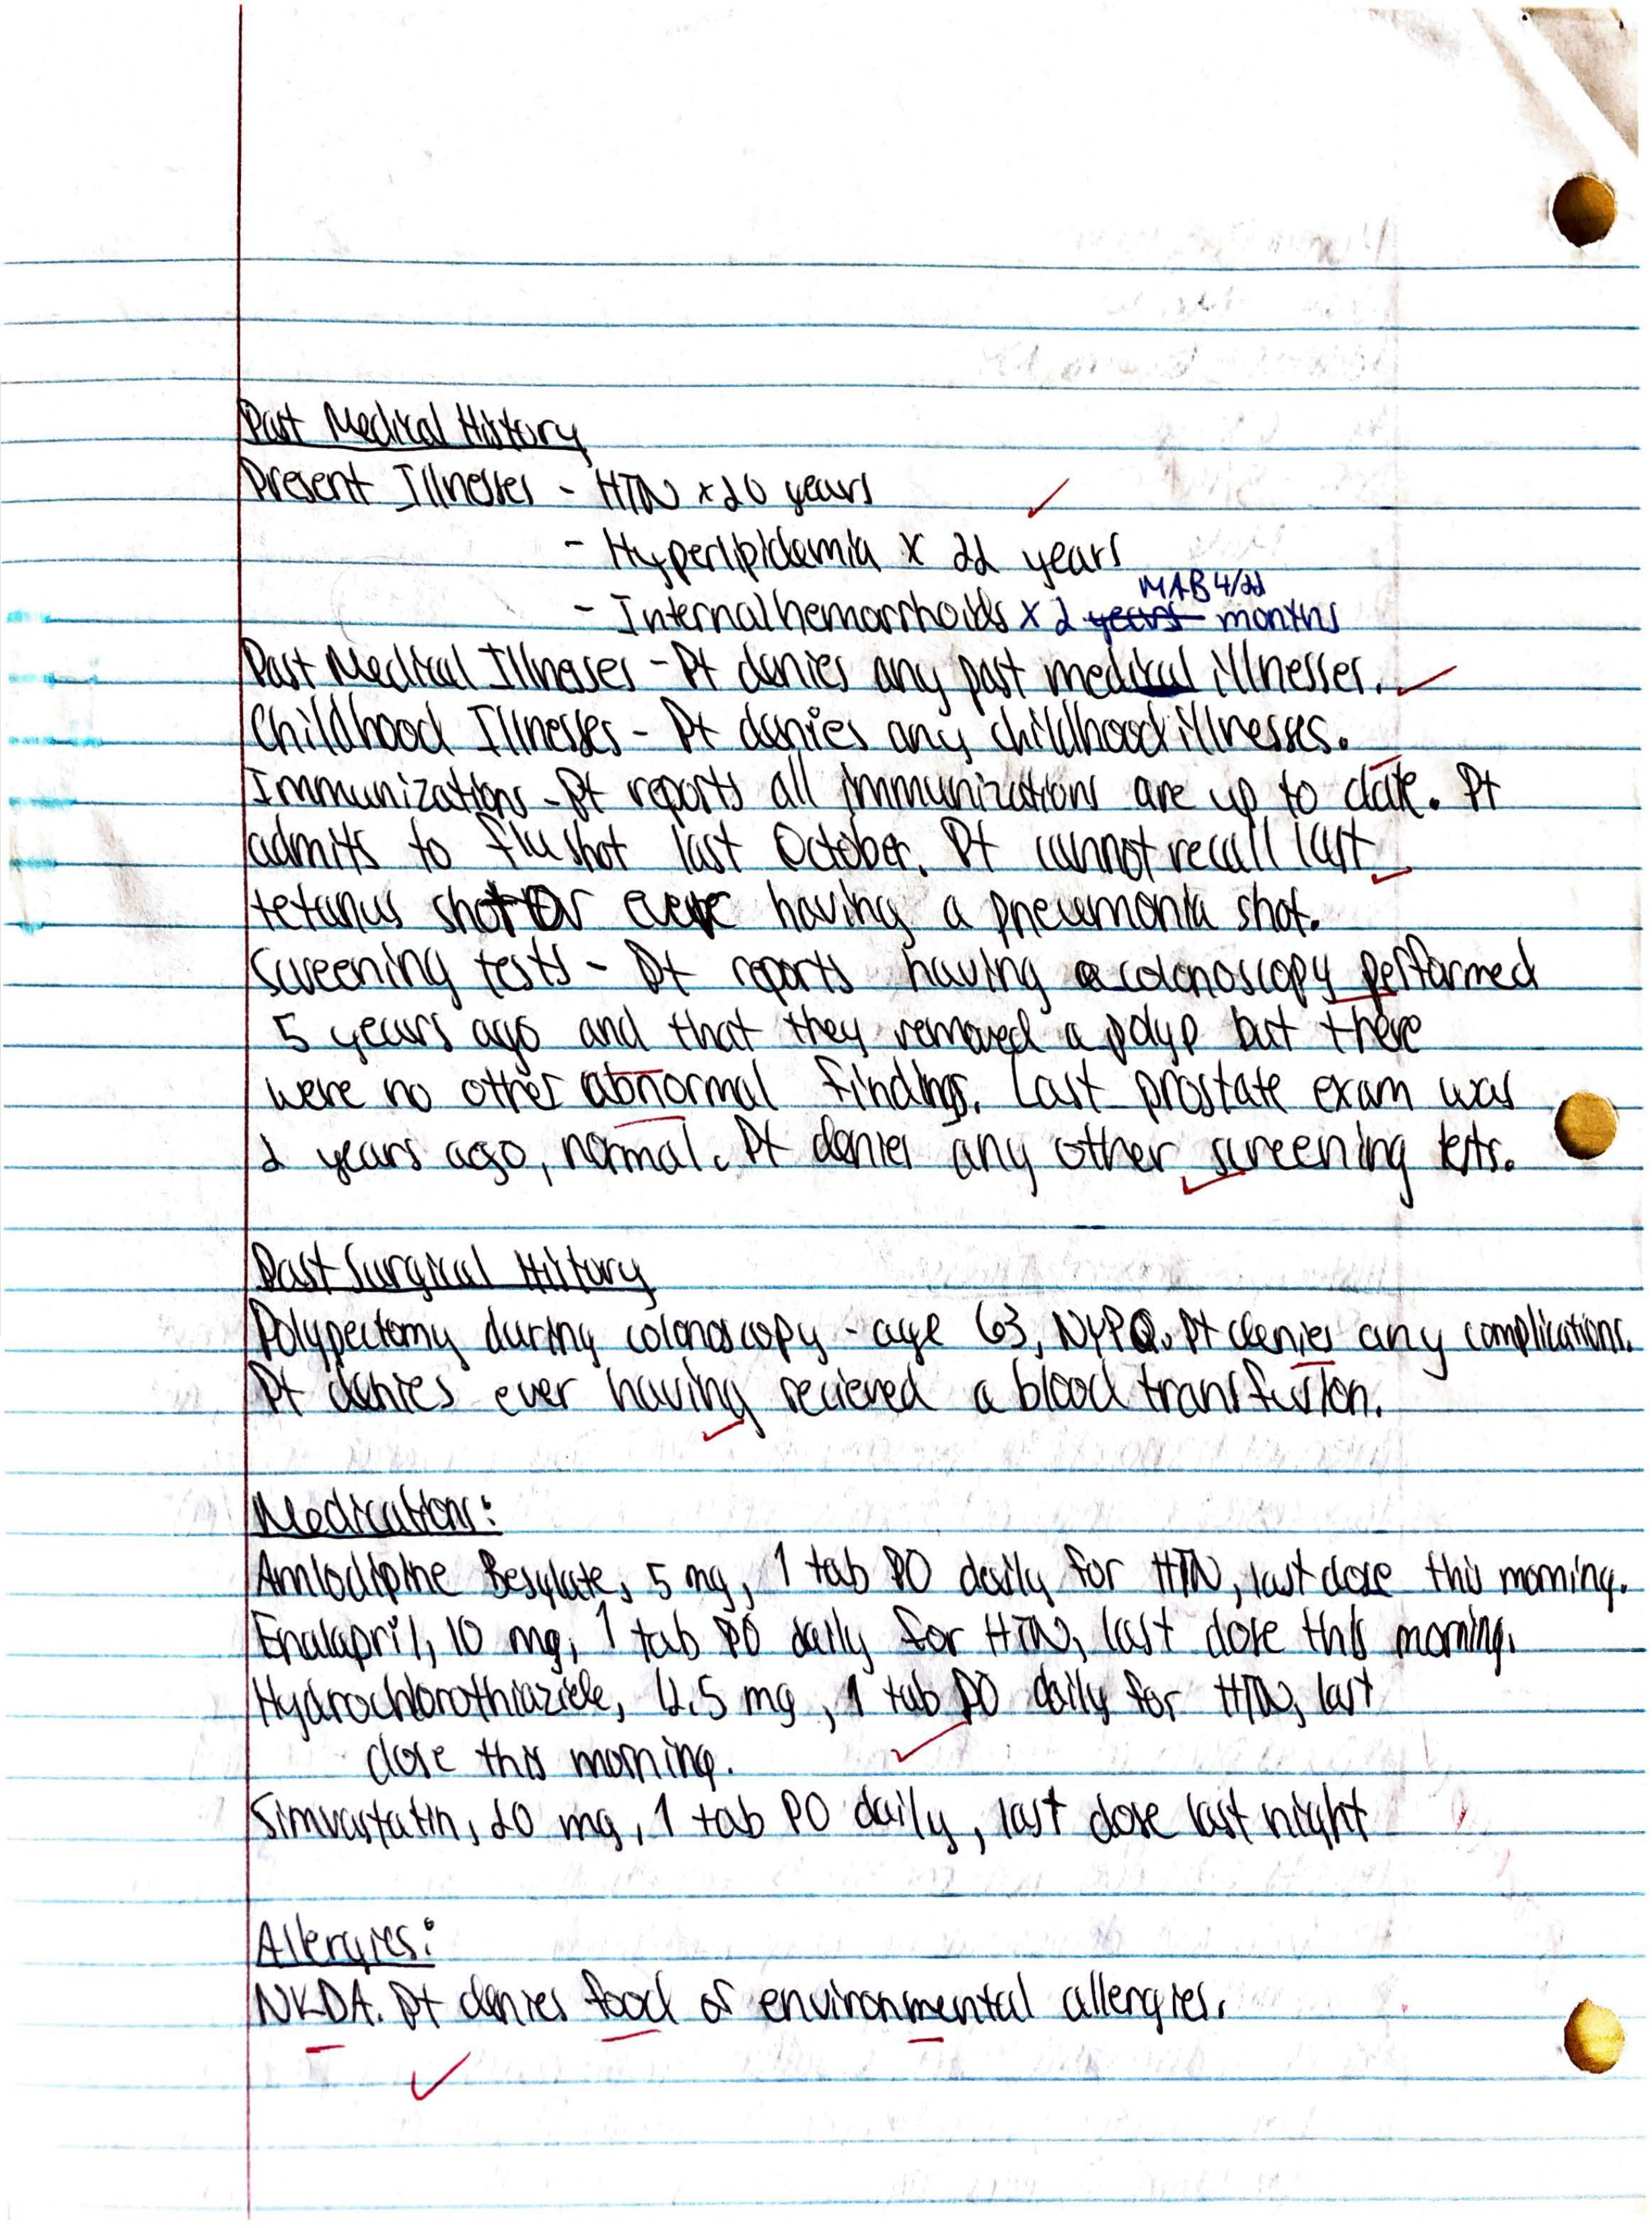 Past Medical History
Present Illnesses - HTN x 20 years
- Hyperlipidemia x 22 years
MAB 4/22
- Internal hemorrhoids x 2 years months
Past Medical Illnesses - Pt denies any past medical illnesses.
Childhood Illnesses - Pt denies any childhood illnesses.
Immunizations - Pt reports all immunizations are up to date. Pt
admits to flu shot last October. Pt cannot recall last
tetanus shot or ever having a pneumonia shot.
Screening tests - Pt reports having a colonoscopy performed
5 years ago and that they removed a polyp but there
were no other abnormal findings. Last prostate exam was
2 years ago, normal. Pt denies any other screening tests.
Past Surgical History
Polypectomy during colonoscopy - age 63, NYPQ. Pt denies any complications.
Pt denies ever having recieved a blood transfusion.
Medications:
Amlodipine Besylate, 5 mg, 1 tab PO daily for HTN, last dose this morning.
Enalapril, 10 mg, 1 tab PO daily for HTN, last dose this morning.
Hydrochlorothiazide, mg, 1 tab PO daily for HTN, last
dose this morning.
Simvastatin, 20 mg, 1 tab PO daily, last dose last night
Allergies:
NKDA. Pt denies food or environmental allergies.